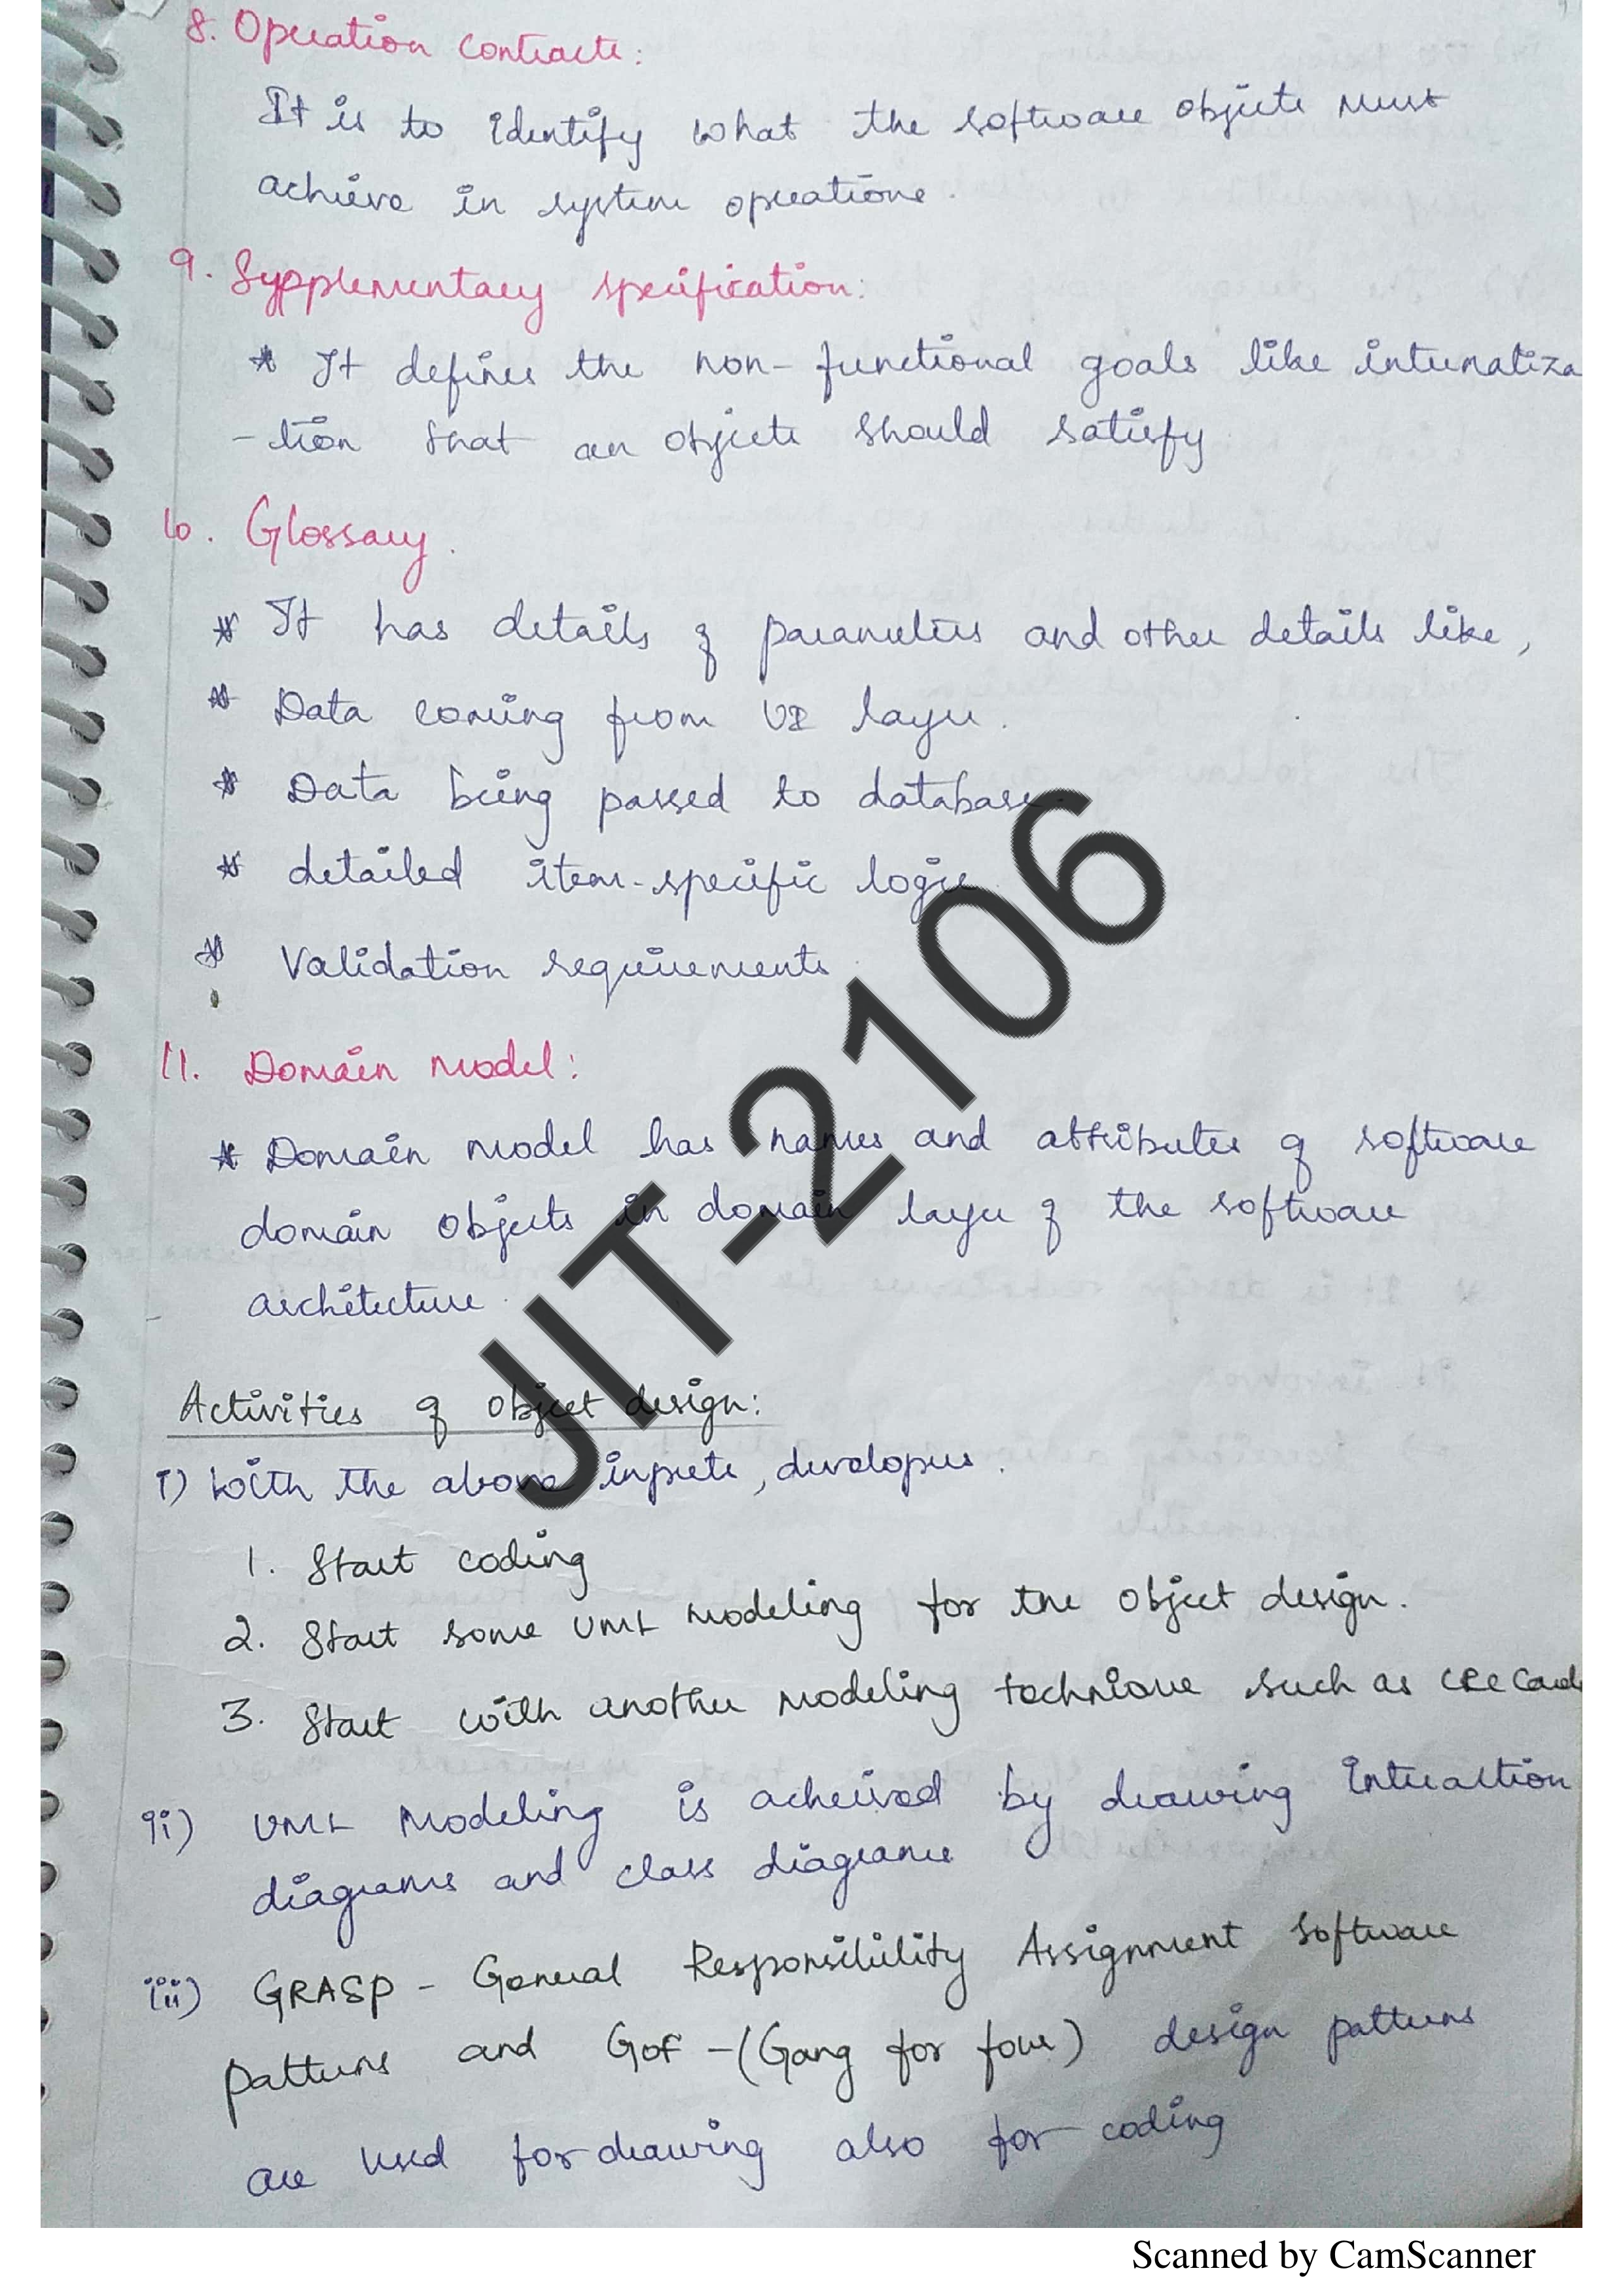 8. Operation contracts:
It is to identify what the software objects must
achieve in system operations.
9. Sypplementary specification:
* It defines the non-functional goals like internatiza
-tion that an objects should satisfy
10. Glossary.
* It has details of parameters and other details like,
* Data coming from UI layer.
* Data being passed to database.
* detailed item-specific logic.
* Validation requirements.
11. Domain model:
* Domain model has names and attributes of software
domain objects in domain layer of the software
architecture.
Activities of object design:
i) With the above inputs, developers.
1. Start coding
2. Start some UML modeling for the object design.
3. Start with another modeling technique such as CRC Cards
ii) UML Modeling is acheived by drawing Interaction
diagrams and class diagrams
iii) GRASP - General Responsibility Assignment Software
patterns and GoF - (Gang for four) design patterns
are used for drawing also for coding
JIT-2106
Scanned by CamScanner